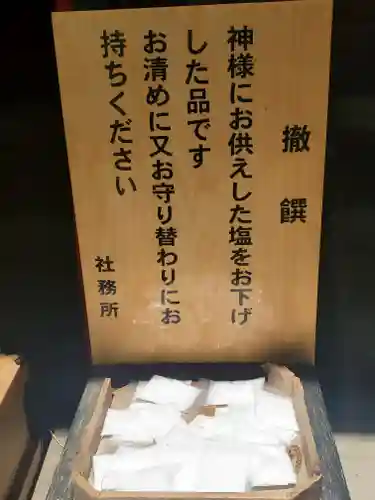 撤饌
神様にお供えした塩をお下げ
した品です
お清めに又お守り替わりにお
持ちください
社務所